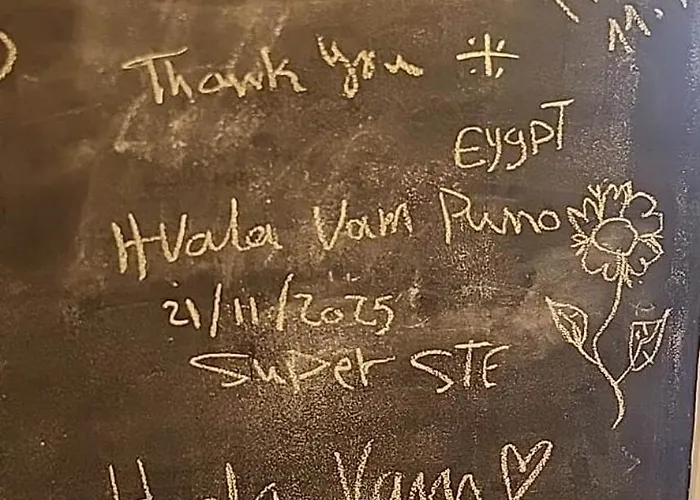 Thank you
Eygpt
Hvala Vam Puno
21/11/2025
Super STE
Hvala Vam